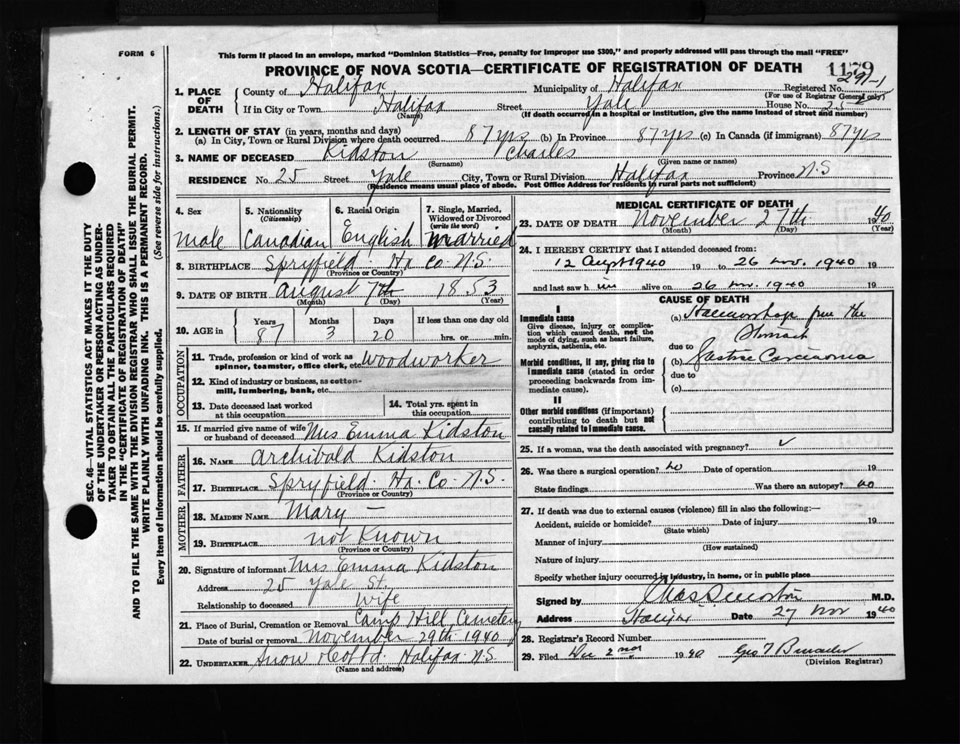 FORM 6
This form if placed in an envelope, marked "Dominion Statistics—Free, penalty for improper use $300," and properly addressed will pass through the mail "FREE"
PROVINCE OF NOVA SCOTIA—CERTIFICATE OF REGISTRATION OF DEATH
1179
1. PLACE OF DEATH
County of Halifax Municipality of Halifax Registered No.
(For use of Registrar General only)
If in City or Town Halifax Street Yale House No. 25
(Name) (If death occurred in a hospital or institution, give the name instead of street and number)
2. LENGTH OF STAY (in years, months and days)
(a) In City, Town or Rural Division where death occurred 87 yrs (b) In Province 87 yrs (c) In Canada (if immigrant) 87 yrs
3. NAME OF DECEASED Kidston Charles
(Surname) (Given name or names)
RESIDENCE No. 25 Street Yale City, Town or Rural Division Halifax Province N.S
(Residence means usual place of abode. Post Office Address for residents in rural parts not sufficient)
4. Sex
male
5. Nationality
(Citizenship)
Canadian
6. Racial Origin
English
7. Single, Married, Widowed or Divorced
(write the word)
married
8. BIRTHPLACE Spryfield Hx Co N.S.
(Province or Country)
9. DATE OF BIRTH August 7th 1853
(Month) (Day) (Year)
10. AGE in
Years Months Days If less than one day old
87 3 20 hrs. or min.
OCCUPATION
11. Trade, profession or kind of work as spinner, teamster, office clerk, etc. Woodworker
12. Kind of industry or business, as cotton-mill, lumbering, bank, etc.
13. Date deceased last worked at this occupation
14. Total yrs. spent in this occupation
15. If married give name of wife or husband of deceased Mrs Emma Kidston
FATHER
16. NAME Archibald Kidston
17. BIRTHPLACE Spryfield Hx Co N.S.
(Province or Country)
MOTHER
18. MAIDEN NAME Mary —
19. BIRTHPLACE not Known
(Province or Country)
20. Signature of informant Mrs Emma Kidston
Address 25 Yale St.
Relationship to deceased wife
21. Place of Burial, Cremation or Removal Camp Hill Cemetery
Date of burial or removal November 29th 1940
22. UNDERTAKER Snow & Co Ltd Halifax N.S.
(Name and address)
MEDICAL CERTIFICATE OF DEATH
23. DATE OF DEATH November 27th 1940
(Month) (Day) (Year)
24. I HEREBY CERTIFY that I attended deceased from:
12 Sept 1940 19 to 26 Nov. 1940 19
and last saw him alive on 26 Nov. 1940 19
CAUSE OF DEATH
I
Immediate cause
Give disease, injury or complication which caused death, not the mode of dying, such as heart failure, asphyxia, asthenia, etc.
(a) Haemorrhage from the Stomach
due to
Morbid conditions, if any, giving rise to immediate cause (stated in order proceeding backwards from immediate cause).
(b) Gastric Carcinoma
due to
(c)
II
Other morbid conditions (if important) contributing to death but not causally related to immediate cause.
25. If a woman, was the death associated with pregnancy?
26. Was there a surgical operation? no Date of operation 19
State findings Was there an autopsy? no
27. If death was due to external causes (violence) fill in also the following:—
Accident, suicide or homicide? Date of injury 19
(State which)
Manner of injury
(How sustained)
Nature of injury
Specify whether injury occurred in industry, in home, or in public place
Signed by M.D.
Address Halifax Date 27 Nov 1940
28. Registrar's Record Number
29. Filed Dec 2nd 1940
(Division Registrar)
SEC. 46—VITAL STATISTICS ACT MAKES IT THE DUTY
OF THE UNDERTAKER OR PERSON ACTING AS UNDER-
TAKER TO OBTAIN ALL THE PARTICULARS REQUIRED
IN THE "CERTIFICATE OF REGISTRATION OF DEATH"
AND TO FILE THE SAME WITH THE DIVISION REGISTRAR WHO SHALL ISSUE THE BURIAL PERMIT.
WRITE PLAINLY WITH UNFADING INK. THIS IS A PERMANENT RECORD.
Every item of Information should be carefully supplied. (See reverse side for instructions.)